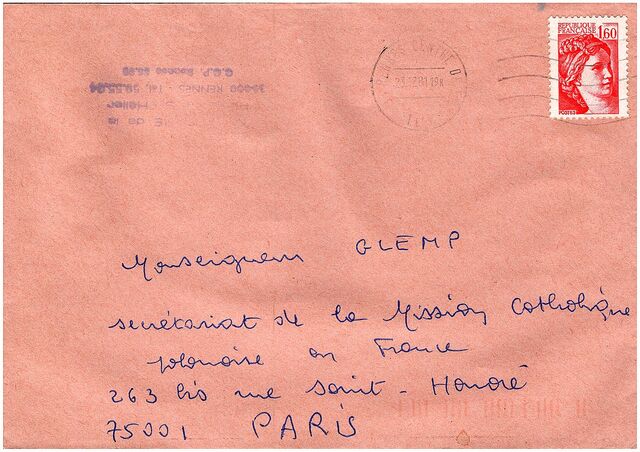 REPUBLIQUE
FRANÇAISE 1,60
POSTES
CENTRE D
35000 RENNES - Tél. 59.55.04
de la
Monseigneur GLEMP
secrétariat de la Mission Catholique
polonaise en France
263 bis rue Saint-Honoré
75001 PARIS